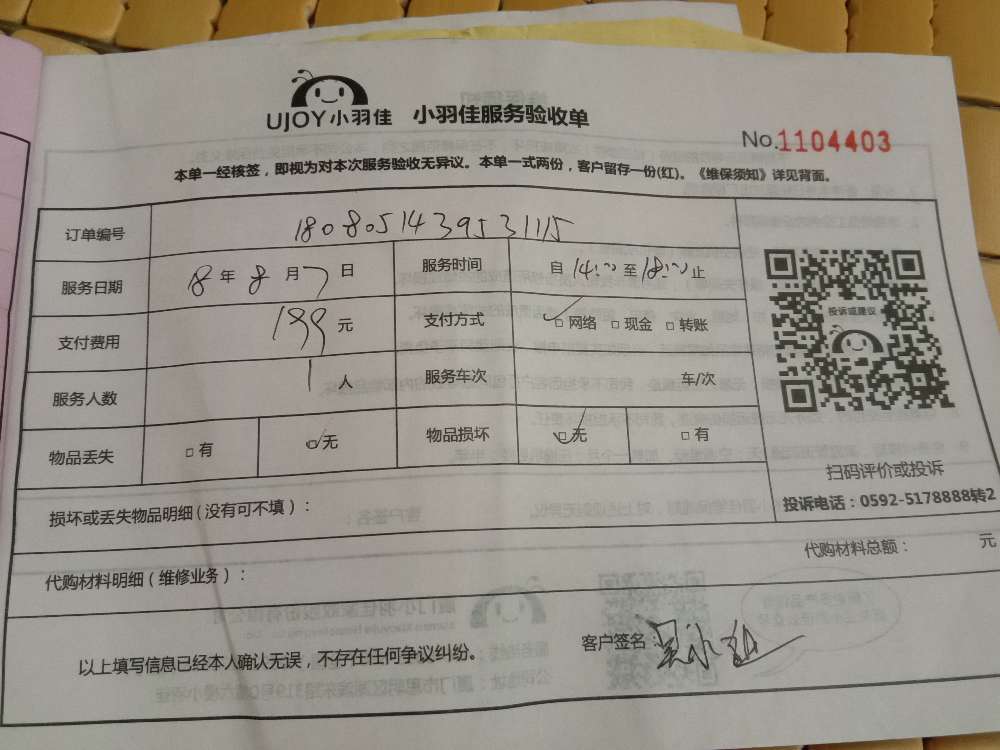 UJOY小羽佳 小羽佳服务验收单
No.1104403
本单一经核签，即视为对本次服务验收无异议。本单一式两份，客户留存一份(红)。《维保须知》详见背面。
订单编号 1808051439531115
服务日期 18年8月7日 服务时间 自14:00至18:00止
支付费用 199元 支付方式 ☑网络 □现金 □转账
服务人数 1人 服务车次 车/次
物品丢失 □有 ☑无 物品损坏 ☑无 □有
投诉或建议
扫码评价或投诉
投诉电话：0592-5178888转2
损坏或丢失物品明细(没有可不填)：
代购材料明细(维修业务)： 代购材料总额： 元
以上填写信息已经本人确认无误，不存在任何争议纠纷。 客户签名：